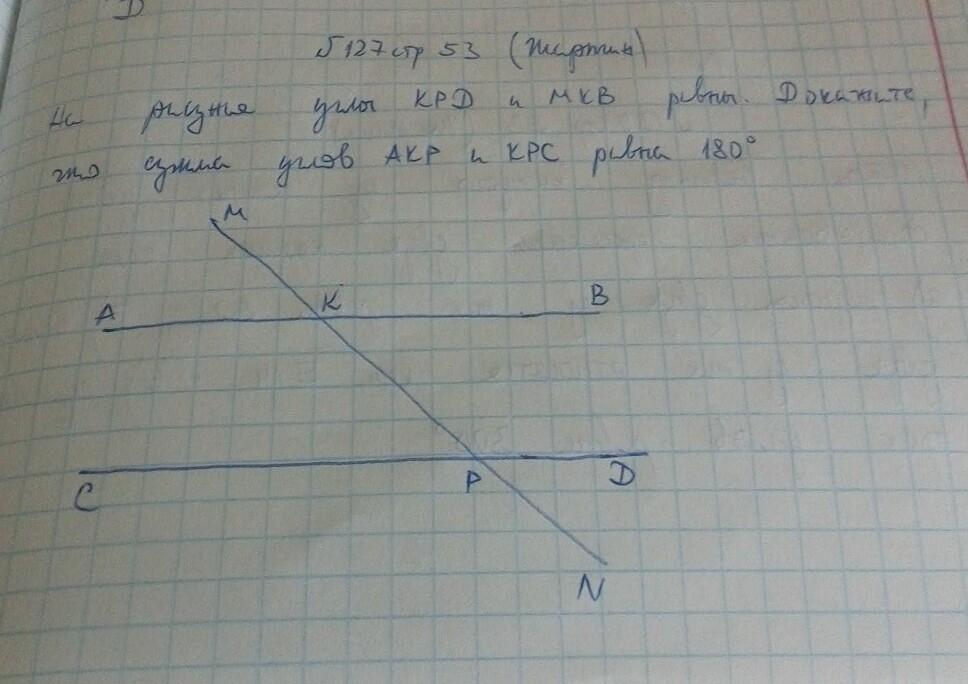 D
№127 стр 53 (
На рисунке углы KPD и MKB равны. Докажите,
что сумма углов AKP и KPC равна 180°
M
K
B
A
P
D
C
N